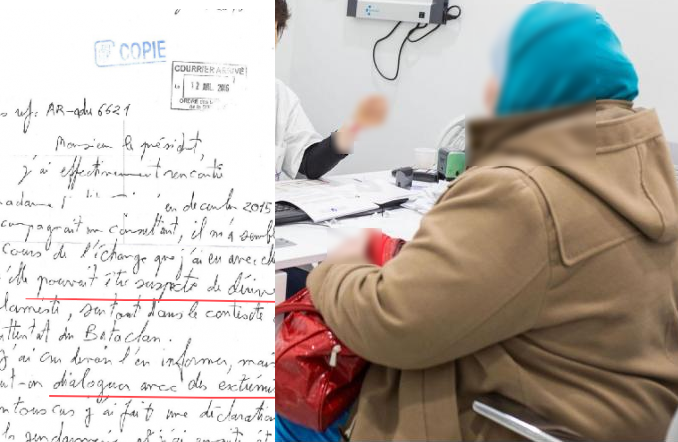 COPIE
COURRIER ARRIVÉ
Le 12 JUIL. 2016
ORDRE
réf: AR-adu 6621
Monsieur le président,
j'ai effectivement rencontré
madame en décembre 2015
accompagnait un consultant, il m'a semb
cours de l'échange que j'ai eu avec
elle pouvait être suspecte de dérive
islamiste, surtout dans le contexte
attentat du Bataclan.
j'ai cru devoir l'en informer, mais
peut-on dialoguer avec des extrémi
en tous cas j'ai fait une déclaration
la gendarmerie et j'ai